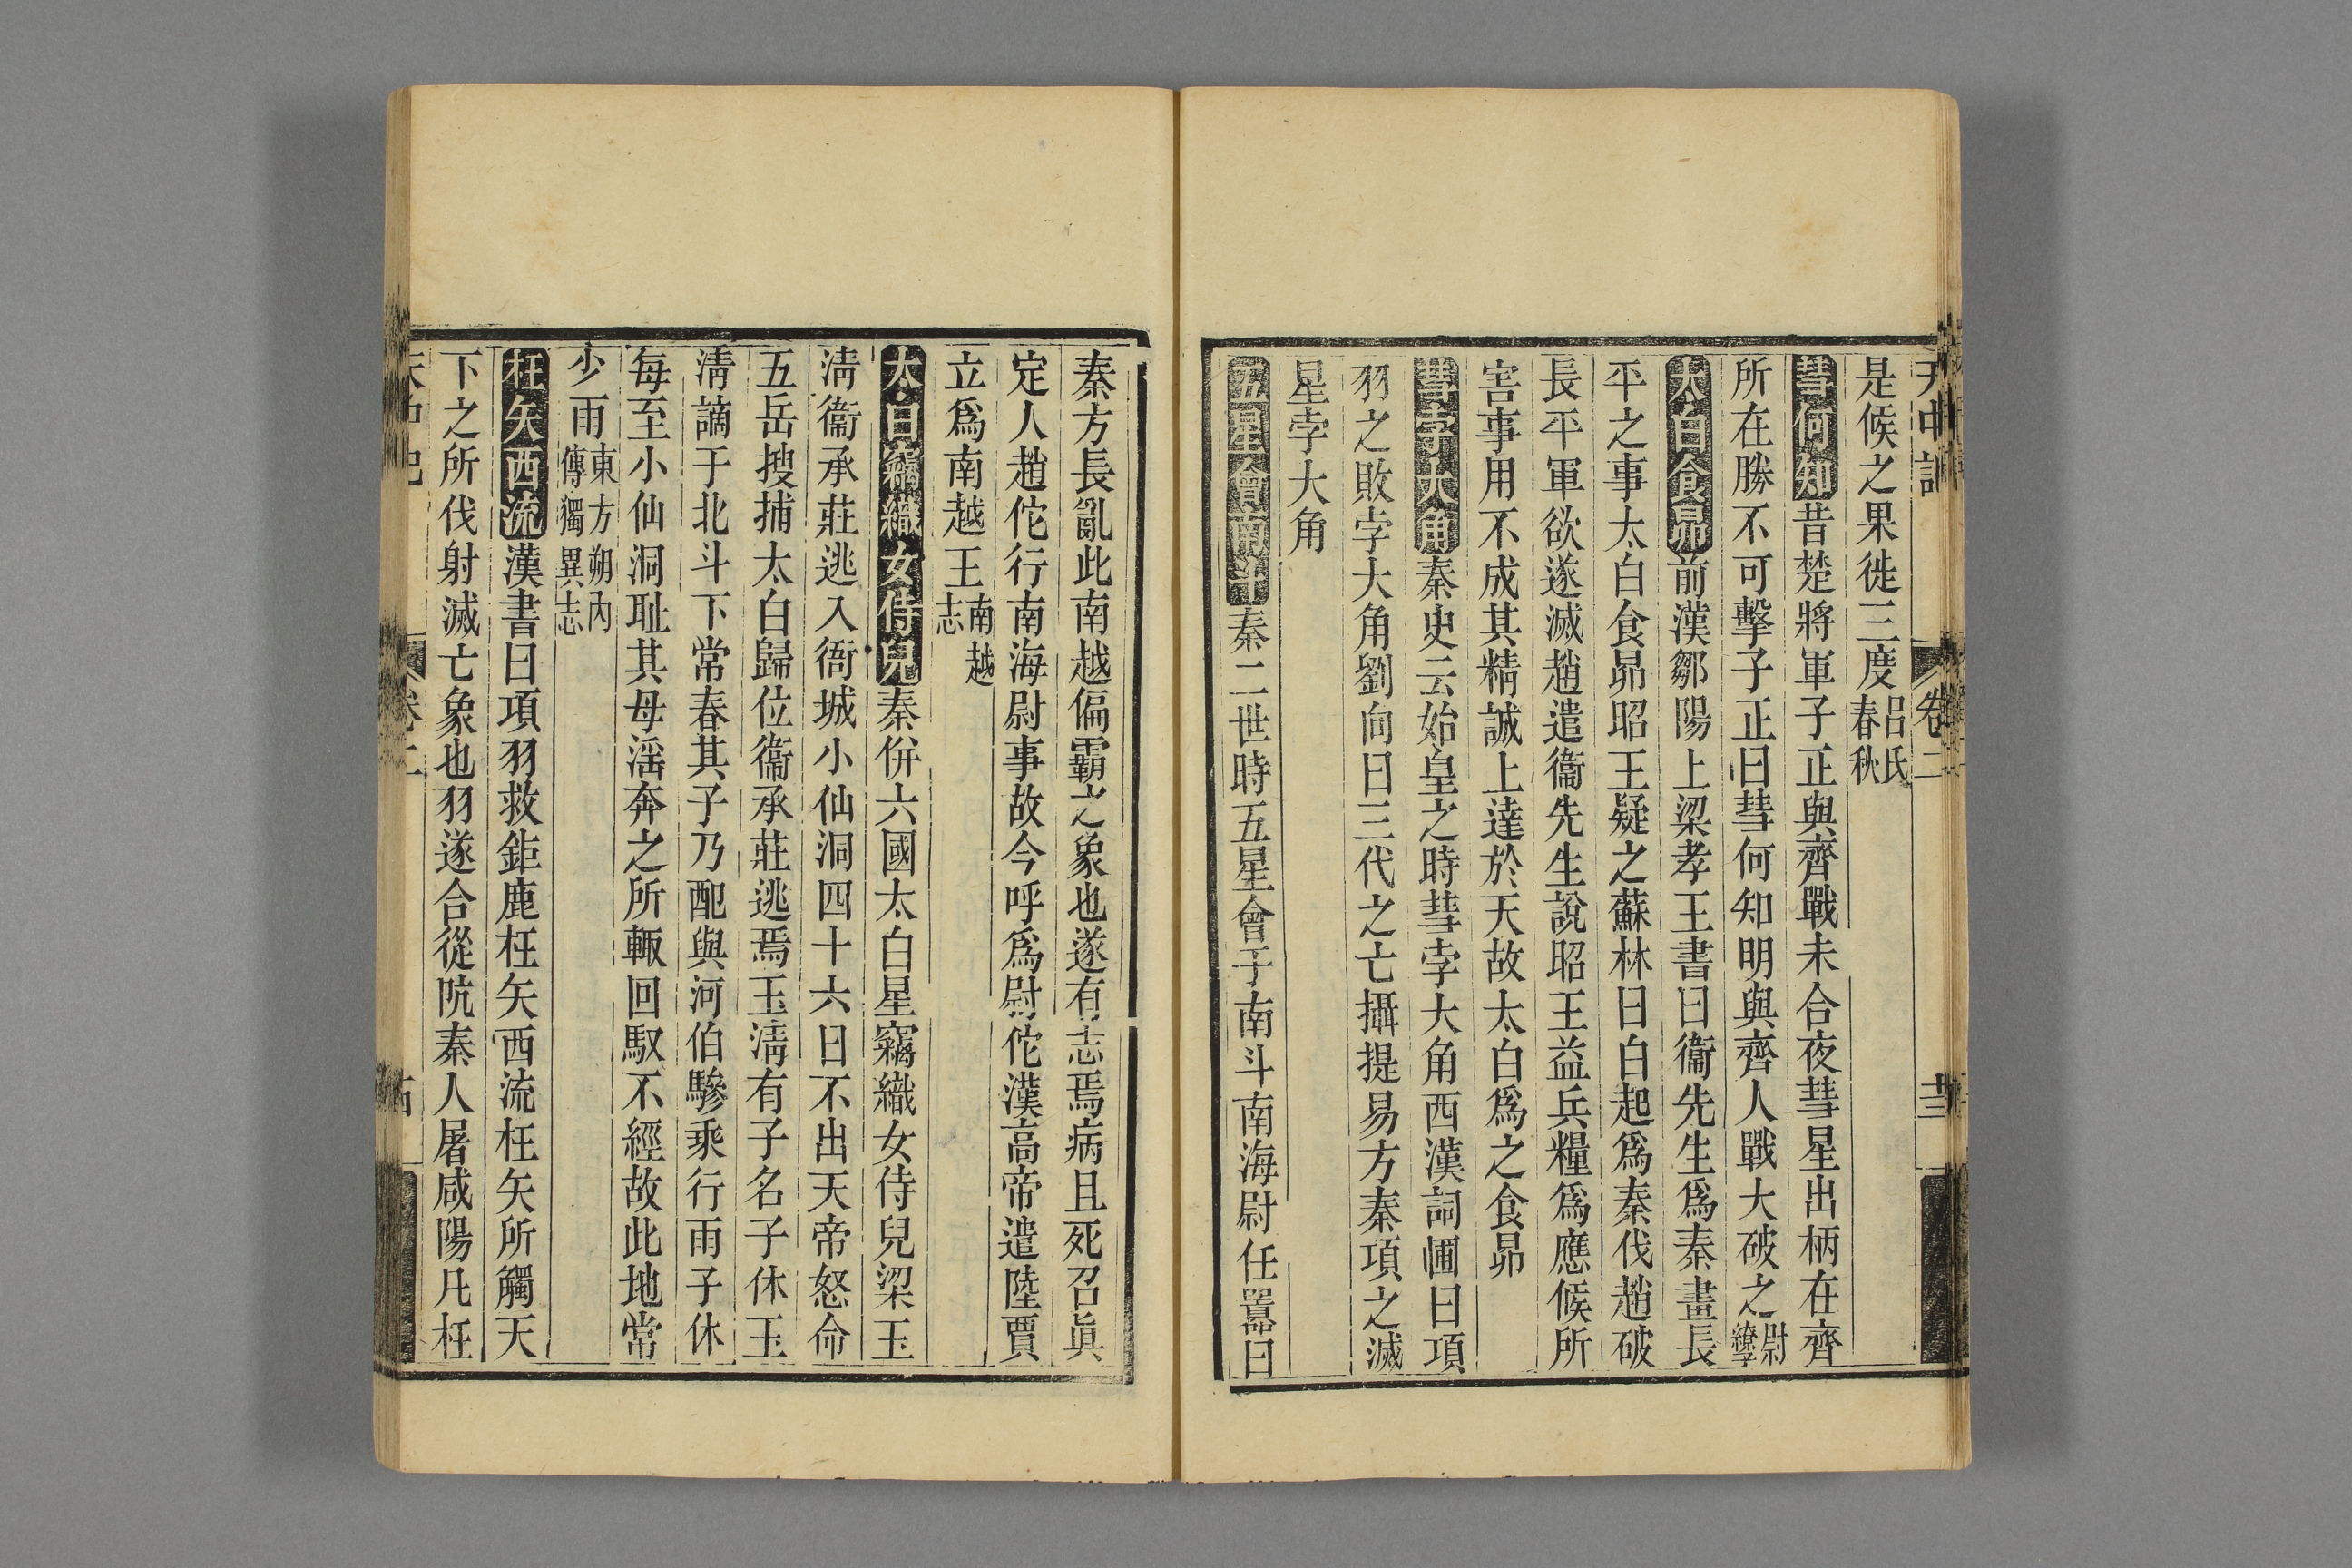 天中記 卷二
是候之果徙三度呂氏春秋
彗何知昔楚將軍子正與齊戰未合夜彗星出柄在齊
所在勝不可擊子正曰彗何知明與齊人戰大破之尉繚子
太白食昴前漢鄒陽上梁孝王書曰衞先生爲秦畫長
平之事太白食昴昭王疑之蘇林曰白起爲秦伐趙破
長平軍欲遂滅趙遣衞先生說昭王益兵糧爲應候所
害事用不成其精誠上達於天故太白爲之食昴
彗孛大角秦史云始皇之時彗孛大角西漢詞圃曰項
羽之敗孛大角劉向曰三代之亡攝提易方秦項之滅
星孛大角
五星會南斗秦二世時五星會于南斗南海尉任囂曰
秦方長亂此南越偏霸之象也遂有志焉病且死召眞
定人趙佗行南海尉事故今呼爲尉佗漢高帝遣陸賈
立爲南越王南越志
太白竊織女侍兒秦併六國太白星竊織女侍兒梁玉
淸衞承莊逃入衙城小仙洞四十六日不出天帝怒命
五岳搜捕太白歸位衞承莊逃焉玉淸有子名子休玉
淸謫于北斗下常春其子乃配與河伯驂乘行雨子休
每至小仙洞耻其母淫奔之所輙回馭不經故此地常
少雨東方朔內傳獨異志
枉矢西流漢書曰項羽救鉅鹿枉矢西流枉矢所觸天
下之所伐射滅亡象也羽遂合從阬秦人屠咸陽凡枉
天中記 卷二